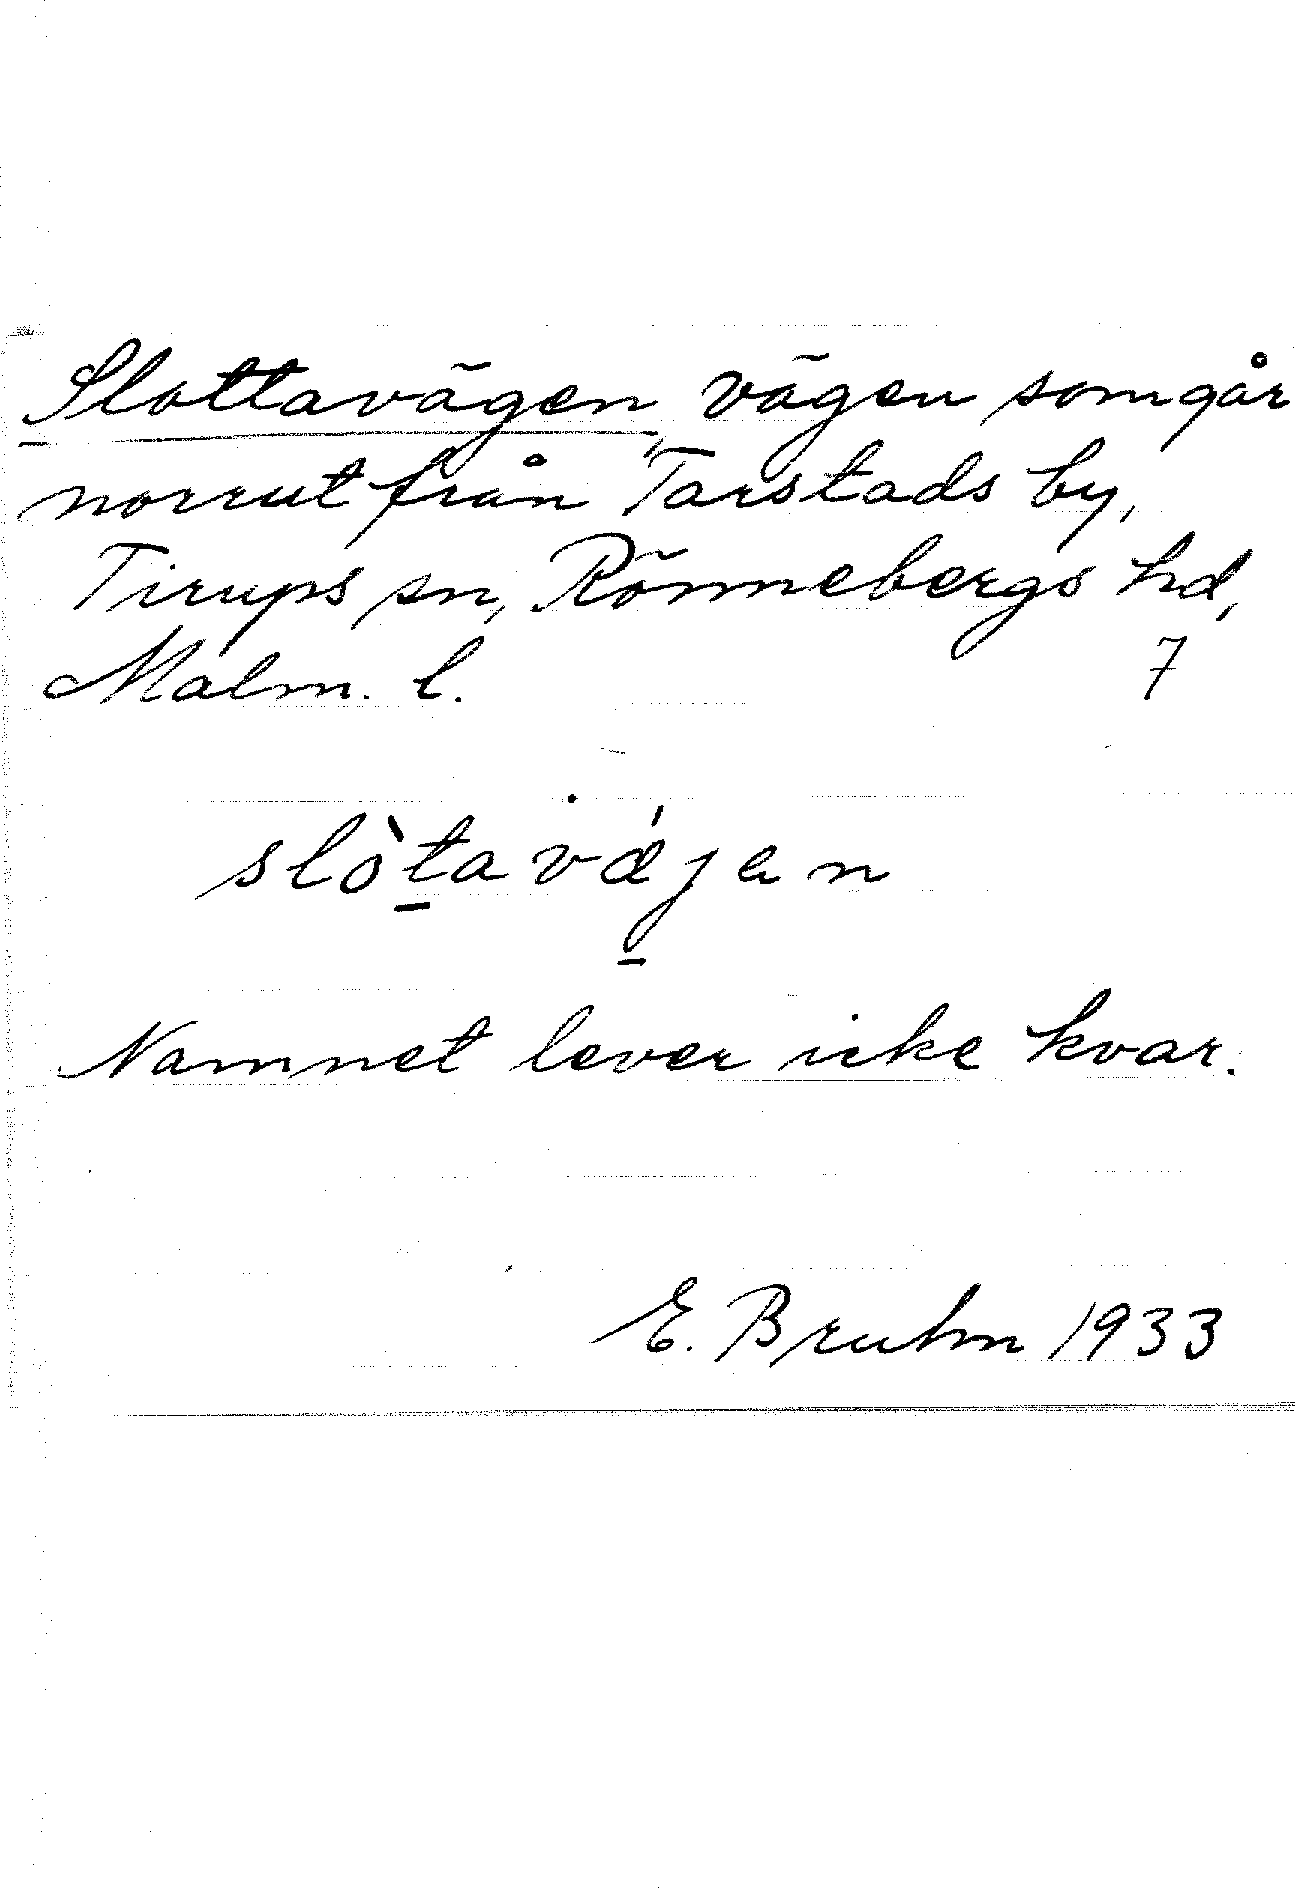 Slottavägen, vägen som går
norrut från Tarstads by,
Tirups sn, Rönnebergs hd,
Malm. l. 7
slòtavǽjen
Namnet lever icke kvar.
E. Bruhn 1933